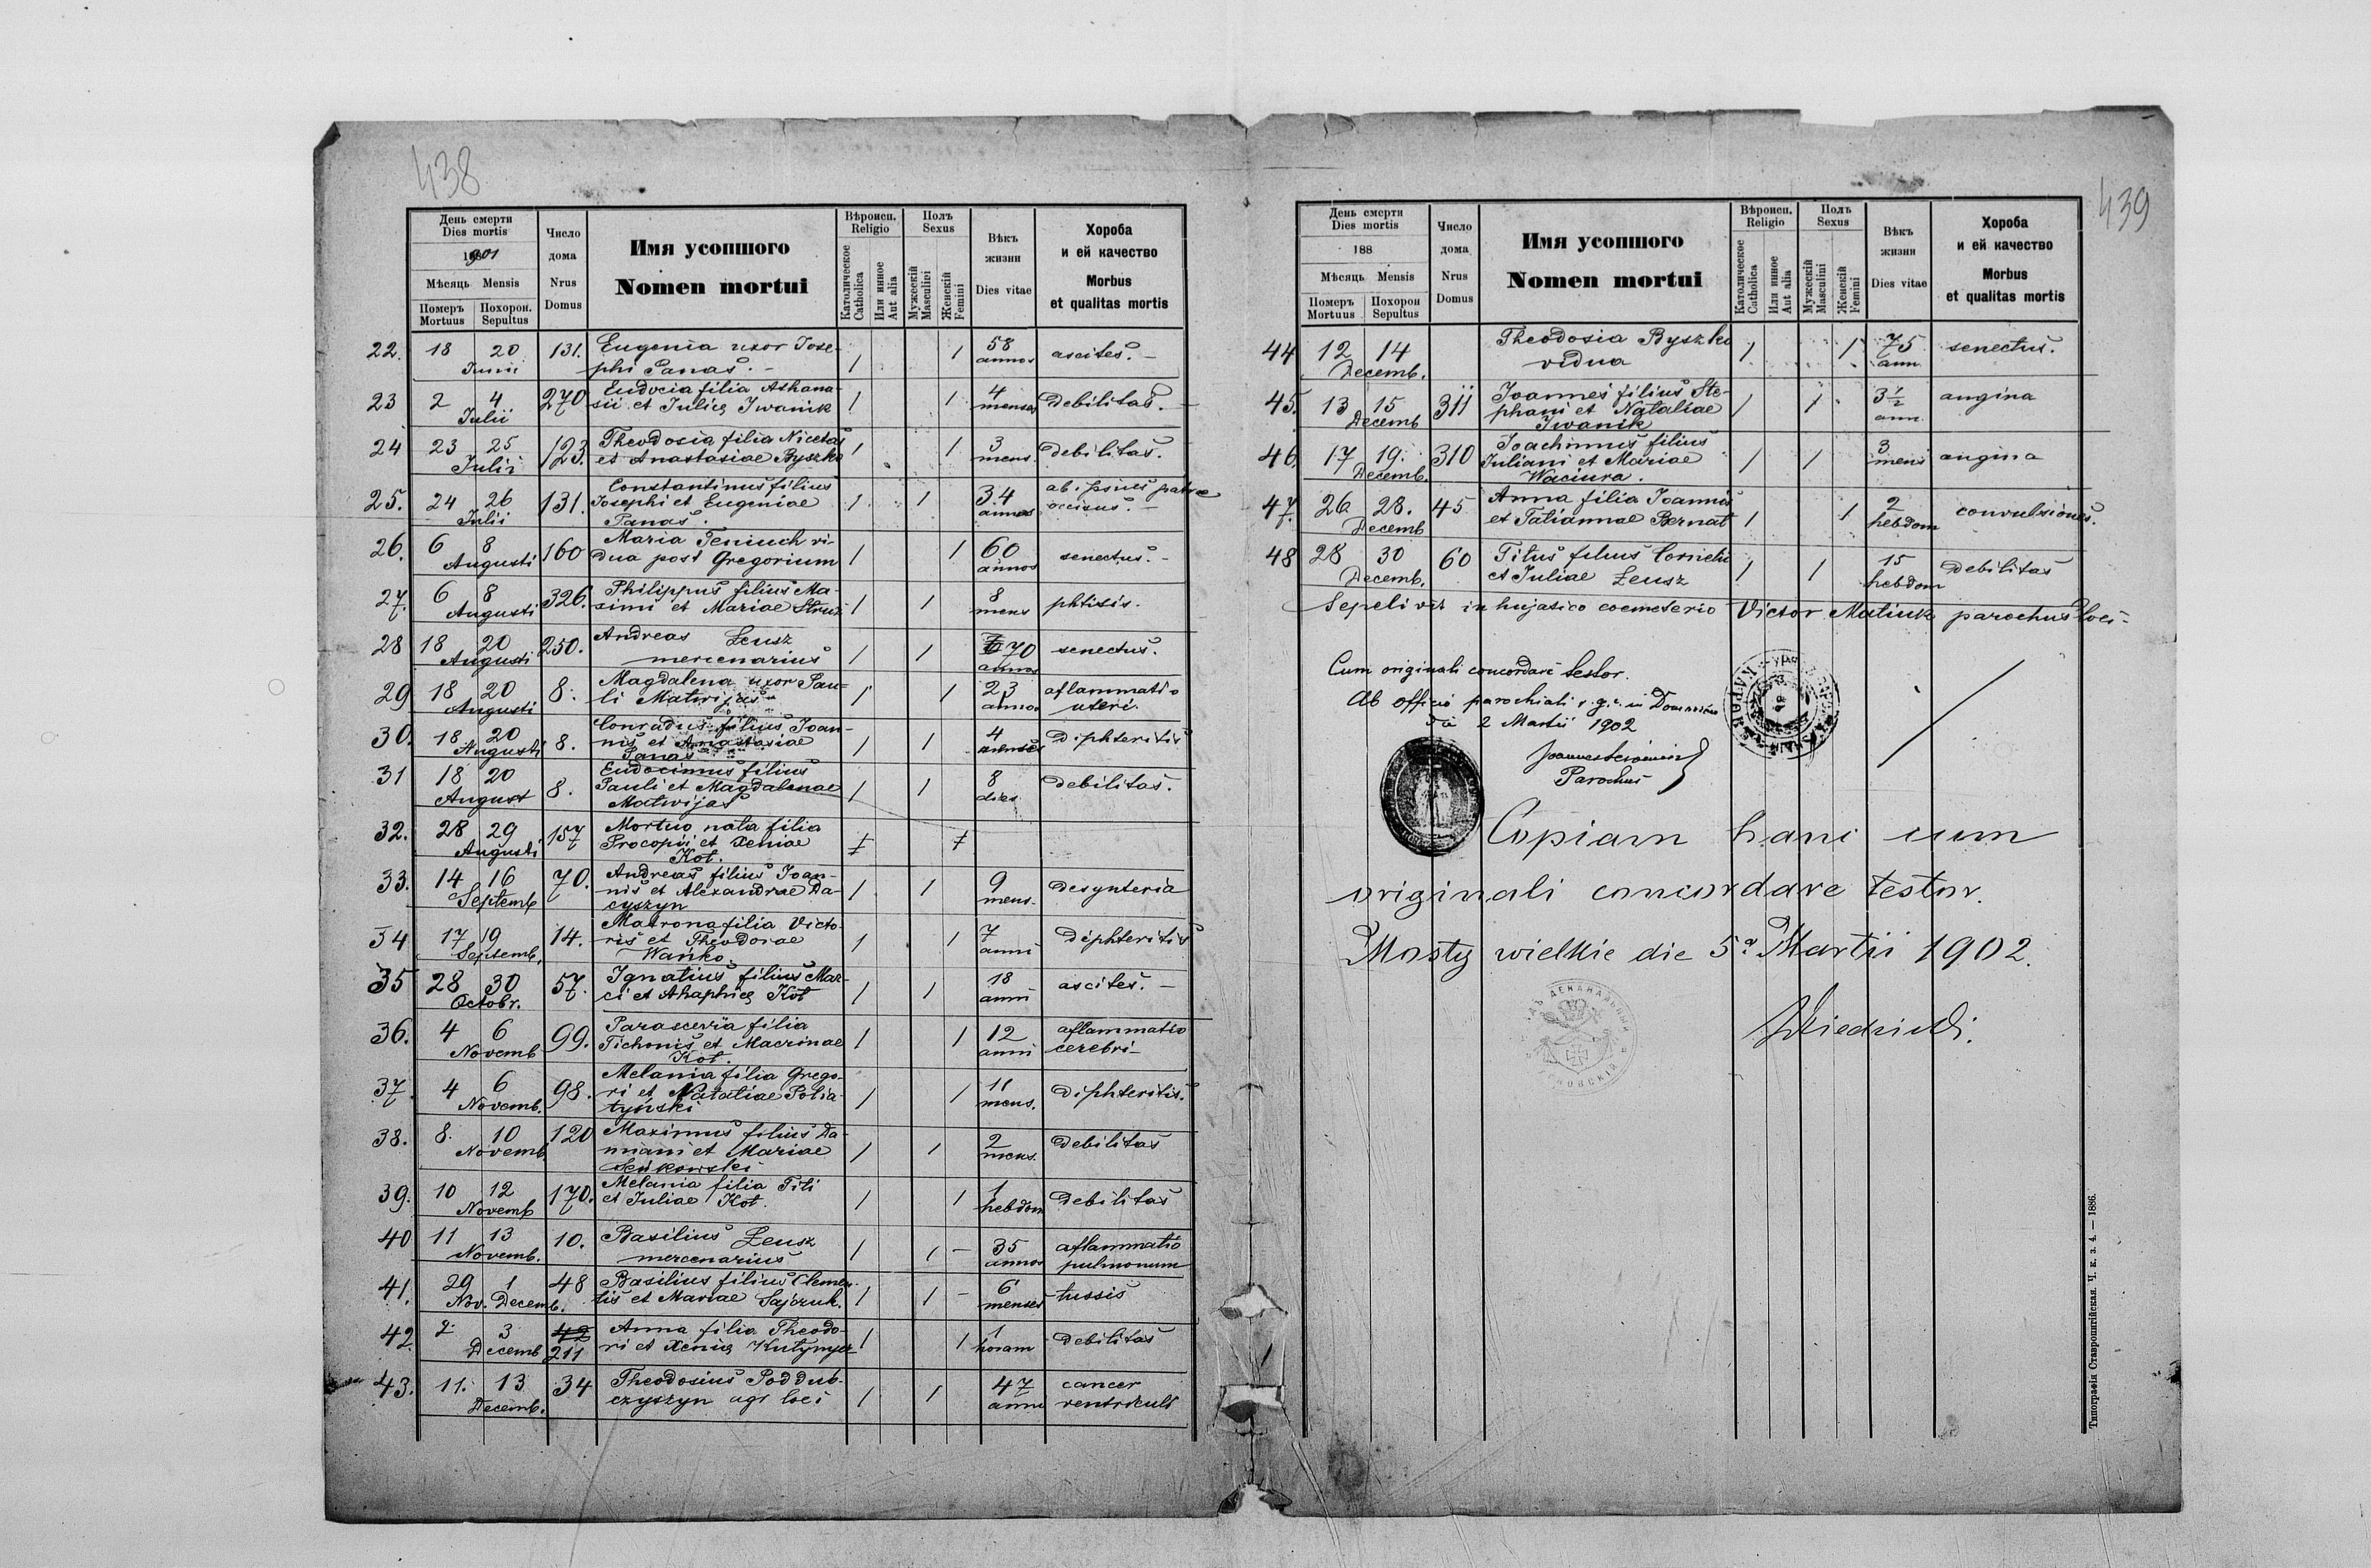 438
День смерти
Dies mortis
1901
Мѣсяць Mensis
Померъ Mortuus
Похорон. Sepultus
Число дома
Nrus Domus
Имя усопшого
Nomen mortui
Вѣроисп. Religio
Католическое Catholica
Или инное Aut alia
Полъ Sexus
Мужескій Masculini
Женскій Femini
Вѣкъ жизни
Dies vitae
Хороба и ей качество
Morbus et qualitas mortis
22. 18 20 131. Eugenia uxor Jose- 1 1 58 ascites. –
Junii phi Panas. – annos
23 2 4 270 Eudocia filia Athana- 1 1 4 debilitas. –
Julii sii et Julia Iwanik menses
24 23 25 123. Theodosia filia Nicetas 1 1 3 debilitas.
Julii et Anastasiae Byszko mens.
25. 24 26 131. Constantinus filius 1 1 3.4 ab ipsius patre
Julii Josephi et Eugeniae annos occisus. –
Panas.
26. 6 8 160 Maria Teniuch vi- 1 1 60 senectus. –
Augusti dua post Gregorium annos
27. 6 8 326. Philippus filius Ma- 1 1 8 phtisis.
Augusti ximi et Mariae mens
28 18 20 250. Andreas Leusz 1 1 70 senectus.
Augusti mercenarius annos
29 18 20 8. Magdalena uxor Pau- 1 1 23 aflammatio
Augusti li Matwijas annos uteri.
30. 18 20 8. Conradus filius Joan- 1 1 4 diphteritis
Augusti nis et Anastasiae menses
Panas
31 18 20 8. Eudocimus filius 1 1 8 debilitas.
August Pauli et Magdalenae dies
Matwijas
32. 28 29 157 Mortuo nata filia
Augusti Procopii et Xeniae
Kot.
33. 14 16 70. Andreas filius Joan- 1 1 9 desynteria
Septemb nis et Alexandrae Da- mens.
cyszyn
34 17 19 14. Matrona filia Victo- 1 1 7 diphteritis
Septemb. ris et Theodorae anni
Wańko.
35 28 30 57. Ignatius filius Mar- 1 1 18 ascites. –
Octobr. ci et Ahaphia Kot anni
36. 4 6 99. Parascevia filia 1 1 12 aflammatio
Novemb Tichonis et Macrinae anni cerebri –
Kot.
37. 4 6 98. Melania filia Grego- 1 1 11 diphteritis.
Novemb. ri et Nataliae Polia- mens.
tyński
38. 8. 10 120 Maximus filius Da- 1 1 2 debilitas
Novemb miani et Mariae mens.
Seńkowski
39. 10 12 170. Melania filia Titi 1 1 1 debilitas
Novemb et Juliae Kot. hebdom
40 11 13 10. Basilius Leusz 1 1 – 35 aflammatio
Novemb. mercenarius annos pulmonum
41. 29 1 48 Basilius filius Clemen- 1 1 – 6 tussis
Nov. Decemb. tis et Mariae Sajczuk. menses
42. 2 3 42 Anna filia Theodo- 1 1 1 debilitas
Decemb 211 ri et Xenia horam
43. 11. 13 34 Theodosius Poddub- 1 1 47 cancer
Decemb. czyszyn agr loci anni ventriculi
439
День смерти
Dies mortis
188
Мѣсяць Mensis
Померъ Mortuus
Похорон Sepultus
Число дома
Nrus Domus
Имя усопшого
Nomen mortui
Вѣроисп. Religio
Католическое Catholica
Или инное Aut alia
Полъ Sexus
Мужескій Masculini
Женскій Femini
Вѣкъ жизни
Dies vitae
Хороба и ей качество
Morbus et qualitas mortis
44 12 14 Theodosia Byszko 1 1 75 senectus.
Decemb. vidua ann
45. 13 15 311 Joannes filius Ste- 1 1 3½ angina
Decemb phani et Nataliae ann.
Iwanik
46. 17 19. 310 Joachimus filius 1 1 3 angina
Decemb. Juliani et Mariae mens
Waciura.
47. 26 28. 45 Anna filia Joannis 1 1 2 convulsiones.
Decemb et Tatiannae Bernat hebdom
48 28 30 60 Titus filius Cornelii 1 1 15 debilitas
Decemb. et Juliae Leusz hebdom
Sepelivit in hujatico coemeterio Victor Matiuk parochus loci –
Cum originali concordare testor.
Ab officio parochiali r. g. c. in
2 Martii 1902
Parochus
Copiam hanc cum
originali concordare testor.
Mosty wielkie die 5a Martii 1902.
Типографія Ставропигійская. Ч. к. з. 4. — 1886.